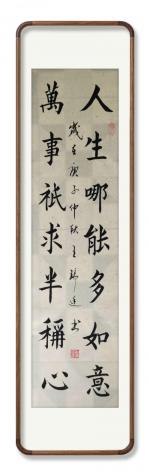 人生哪能多如意
萬事祇求半稱心
歲在庚子仲秋王瑞廷書